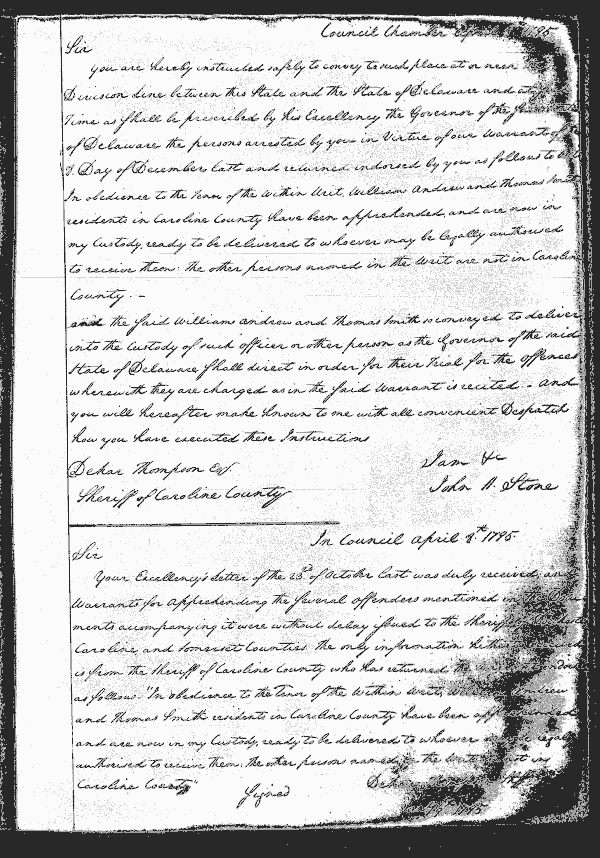 Council Chamber April 1795
Sir
you are hereby instructed safely to convey to such place at or near
Division line between this State and the State of Delaware and at
Time as shall be prescribed by his Excellency the Governor of the
of Delaware the persons arrested by you in Virtue of our Warrant of
Day of December last and returned indorsed by you as follows to
In obedience to the Tenor of the Within Writ, William Andrew and Thomas Smith
residents in Caroline County have been apprehended, and are now in
my Custody, ready to be delivered to whoever may be legally authorised
to receive them: the other persons named in the Writ are not in Caroline
County. -
and the said William Andrew and Thomas Smith so conveyed to deliver
into the Custody of such officer or other person as the Governor of the said
State of Delaware shall direct in order for their Trial for the offences
wherewith they are charged as in the said Warrant is recited - And
you will hereafter make known to me with all convenient Despatch
how you have executed these Instructions
I am &c
Thompson Esq.
John H. Stone
Sheriff of Caroline County
In Council April 8th 1795.
Sir
Your Excellency's Letter of the 23d of October last was duly received, and
Warrants for Apprehending the several offenders mentioned in
ments accompanying it were without delay issued to the Sheriffs
Caroline, and Somerset Counties. the only information
is from the Sheriff of Caroline County who has returned the
as follows. "In obedience to the Tenor of the Within Writ, Andrew
and Thomas Smith residents in Caroline County have been
and are now in my Custody, ready to be delivered to whoever
authorised to receive them: the other persons named in the Writ not in
Caroline County"
Signed